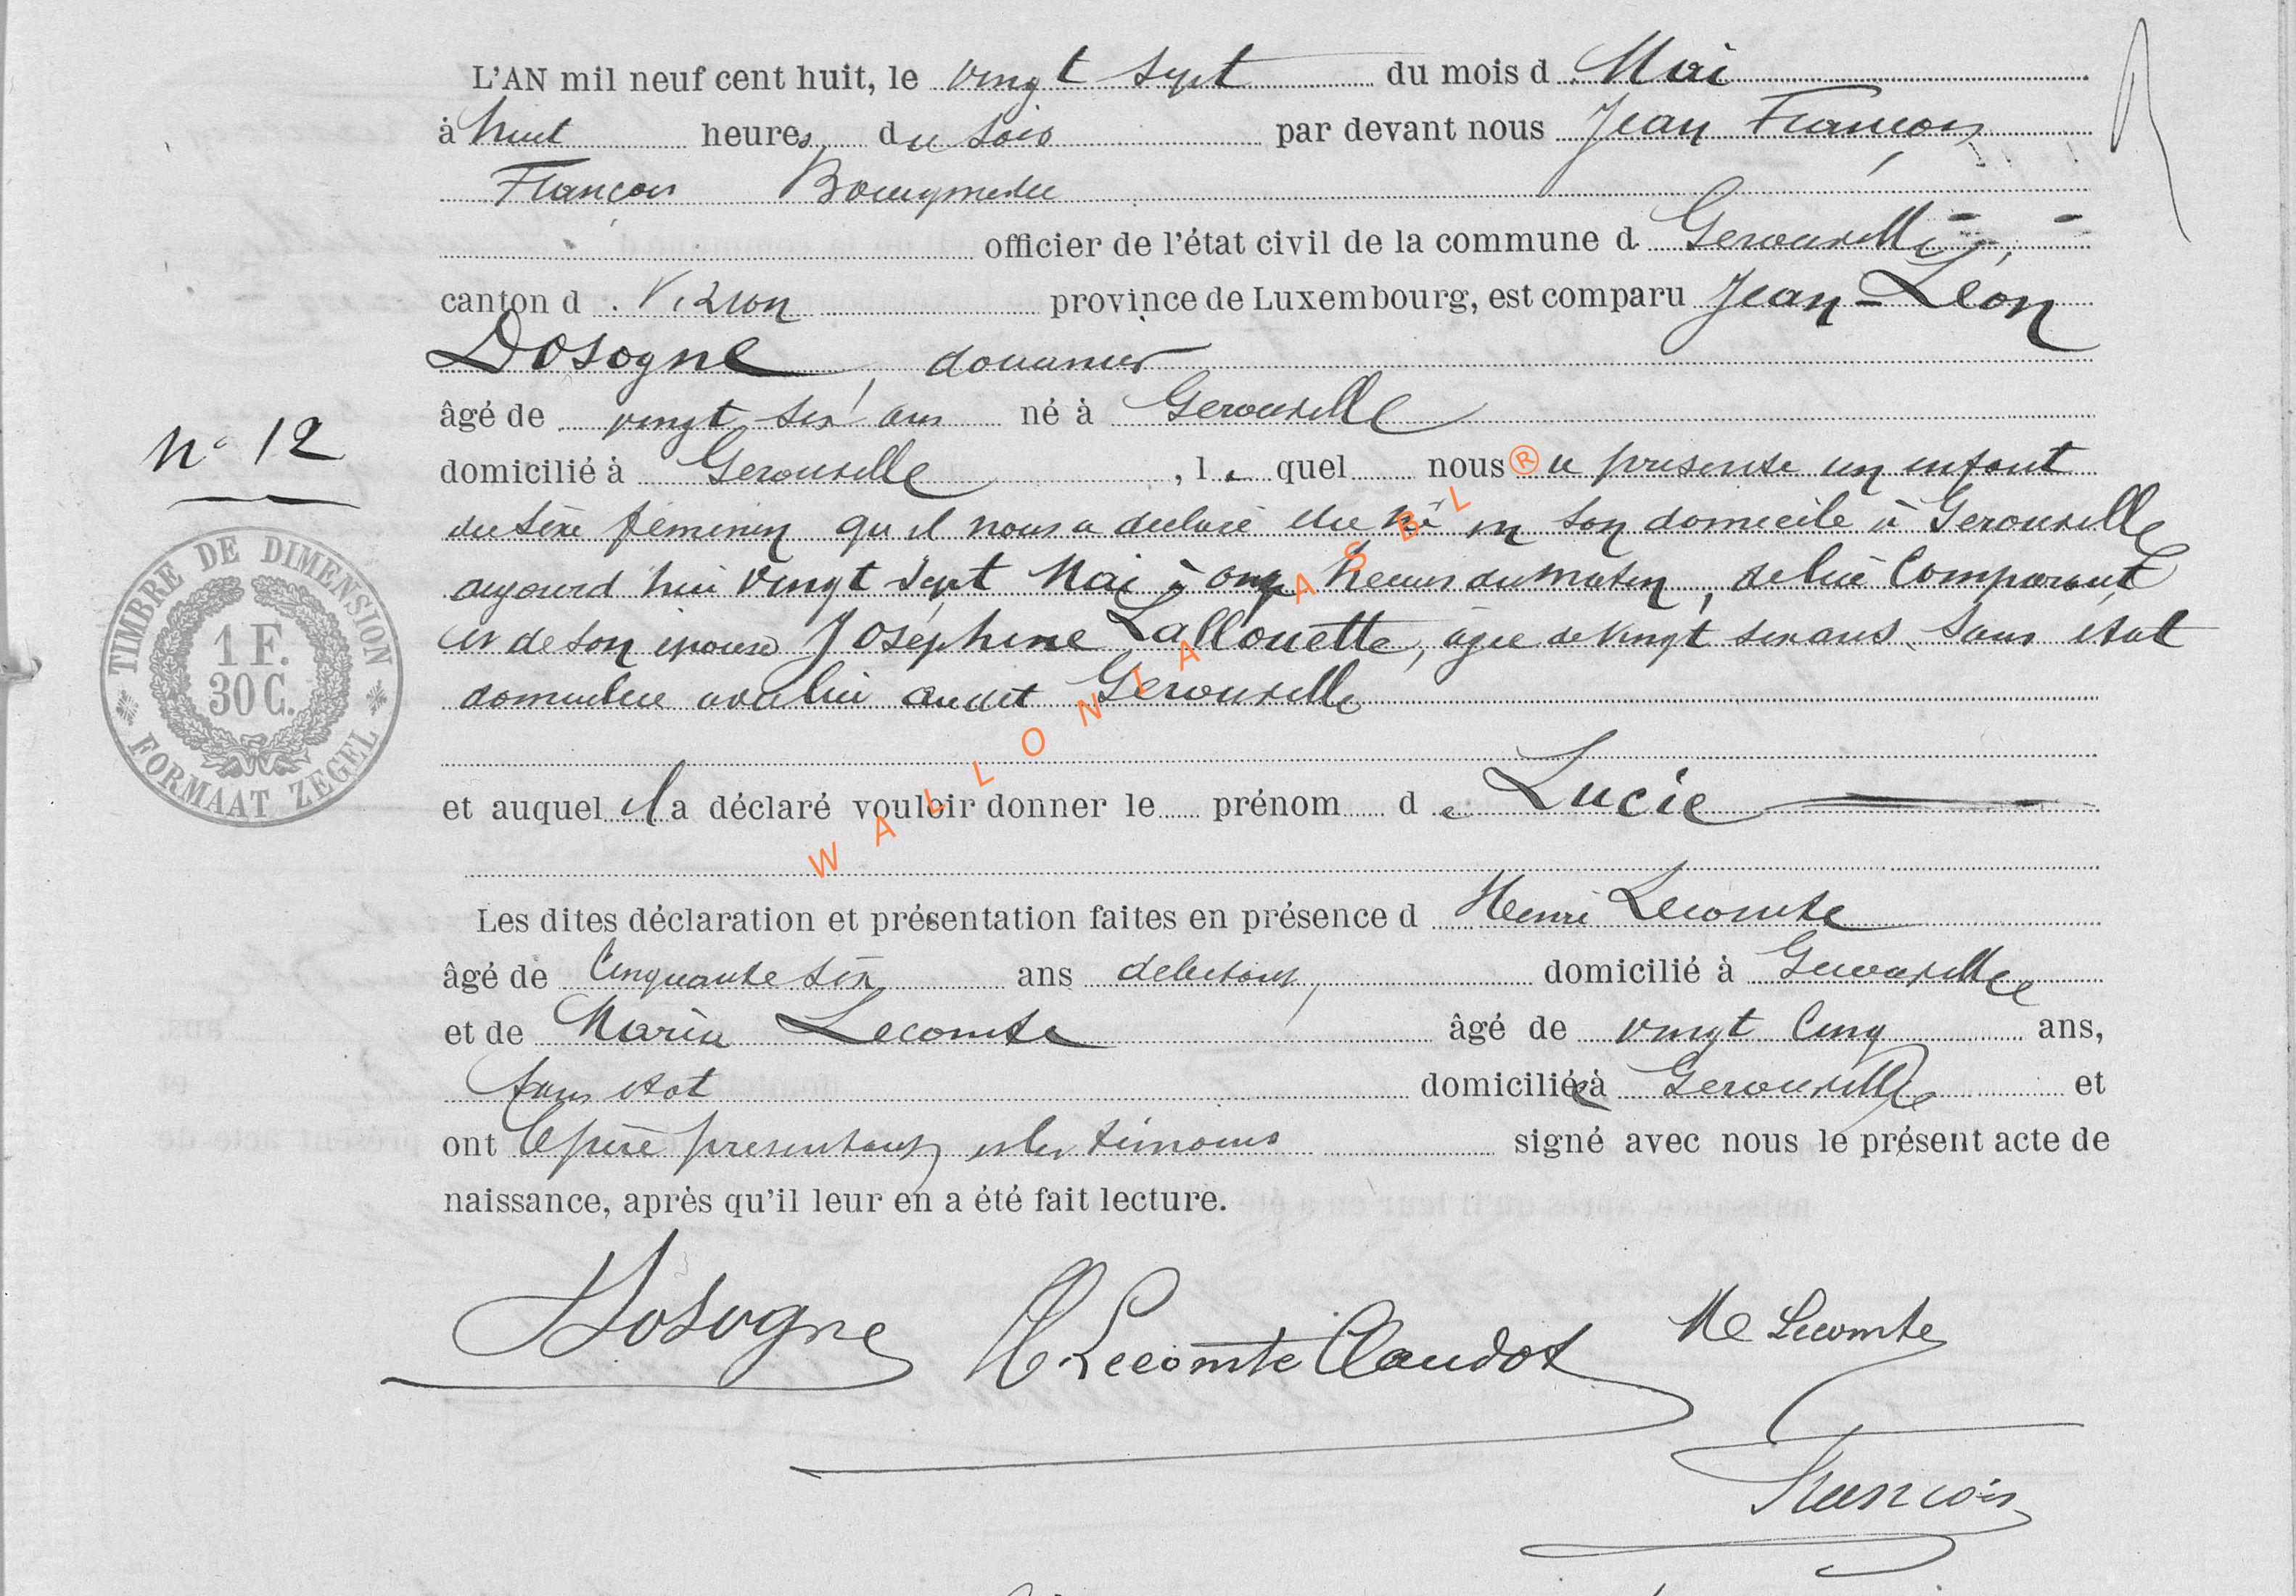 L'AN mil neuf cent huit, le vingt sept du mois d Mai
à huit heures du soir par devant nous Jean François
François Bourgmestre
officier de l'état civil de la commune d Gerouville,
canton d Virton province de Luxembourg, est comparu Jean-Léon
Dosogne, douanier
âgé de vingt six ans né à Gerouville
N° 12
domicilié à Gerouville, le quel nous a présenté un enfant
du sexe féminin qu'il nous a déclaré être né en son domicile à Gerouville
aujourd'hui vingt sept Mai à onze heures du matin, de lui Comparant
et de son épouse Joséphine Lallouette, âgée de vingt six ans sans état
domiciliée avec lui audit Gerouville
TIMBRE DE DIMENSION
1 F.
30 C.
FORMAAT ZEGEL
et auquel il a déclaré vouloir donner le prénom de Lucie
WALLONIA ASBL ®
Les dites déclaration et présentation faites en présence d Henri Lecomte
âgé de Cinquante six ans débitant, domicilié à Gerouville
et de Maria Lecomte âgé de vingt cinq ans,
sans état domiciliée à Gerouville et
ont le père présentant et les témoins signé avec nous le présent acte de
naissance, après qu'il leur en a été fait lecture.
Dosogne H Lecomte Claudot M Lecomte
François